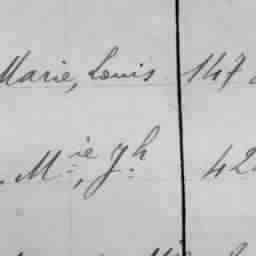 Marie, Louis 147
M.ie, Jh. 42